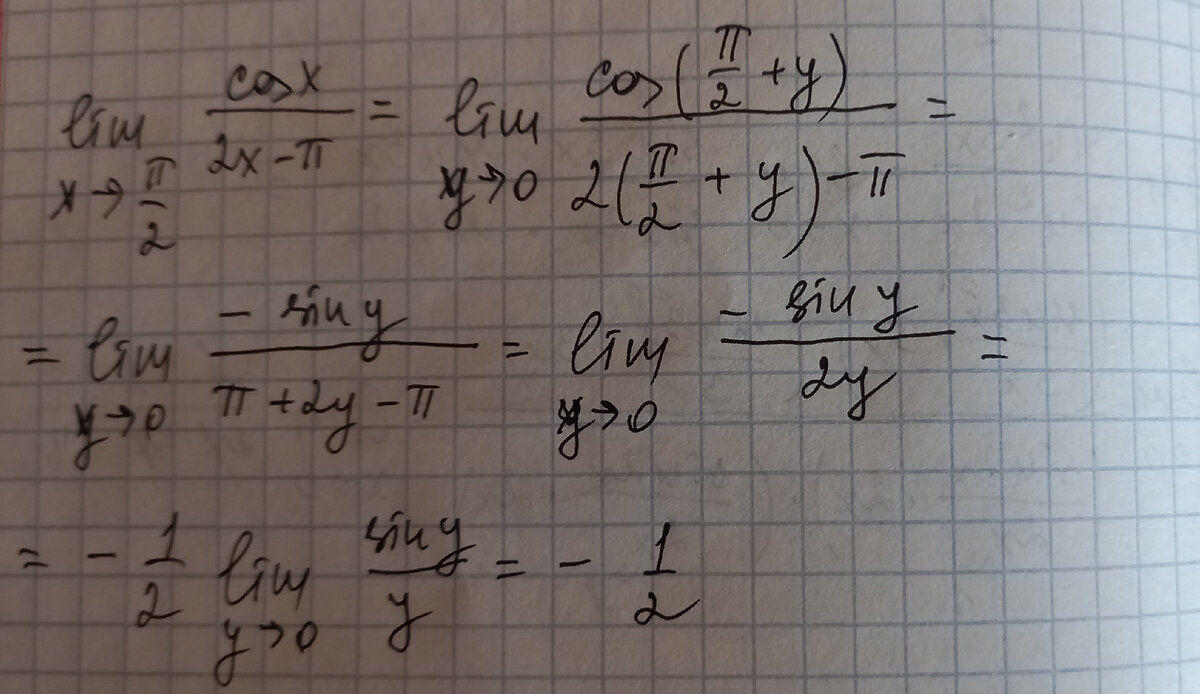 lim x→π/2 cos x / (2x - π) = lim y→0 cos(π/2 + y) / (2(π/2 + y) - π) =
= lim y→0 - sin y / (π + 2y - π) = lim y→0 - sin y / 2y =
= - 1/2 lim y→0 sin y / y = - 1/2